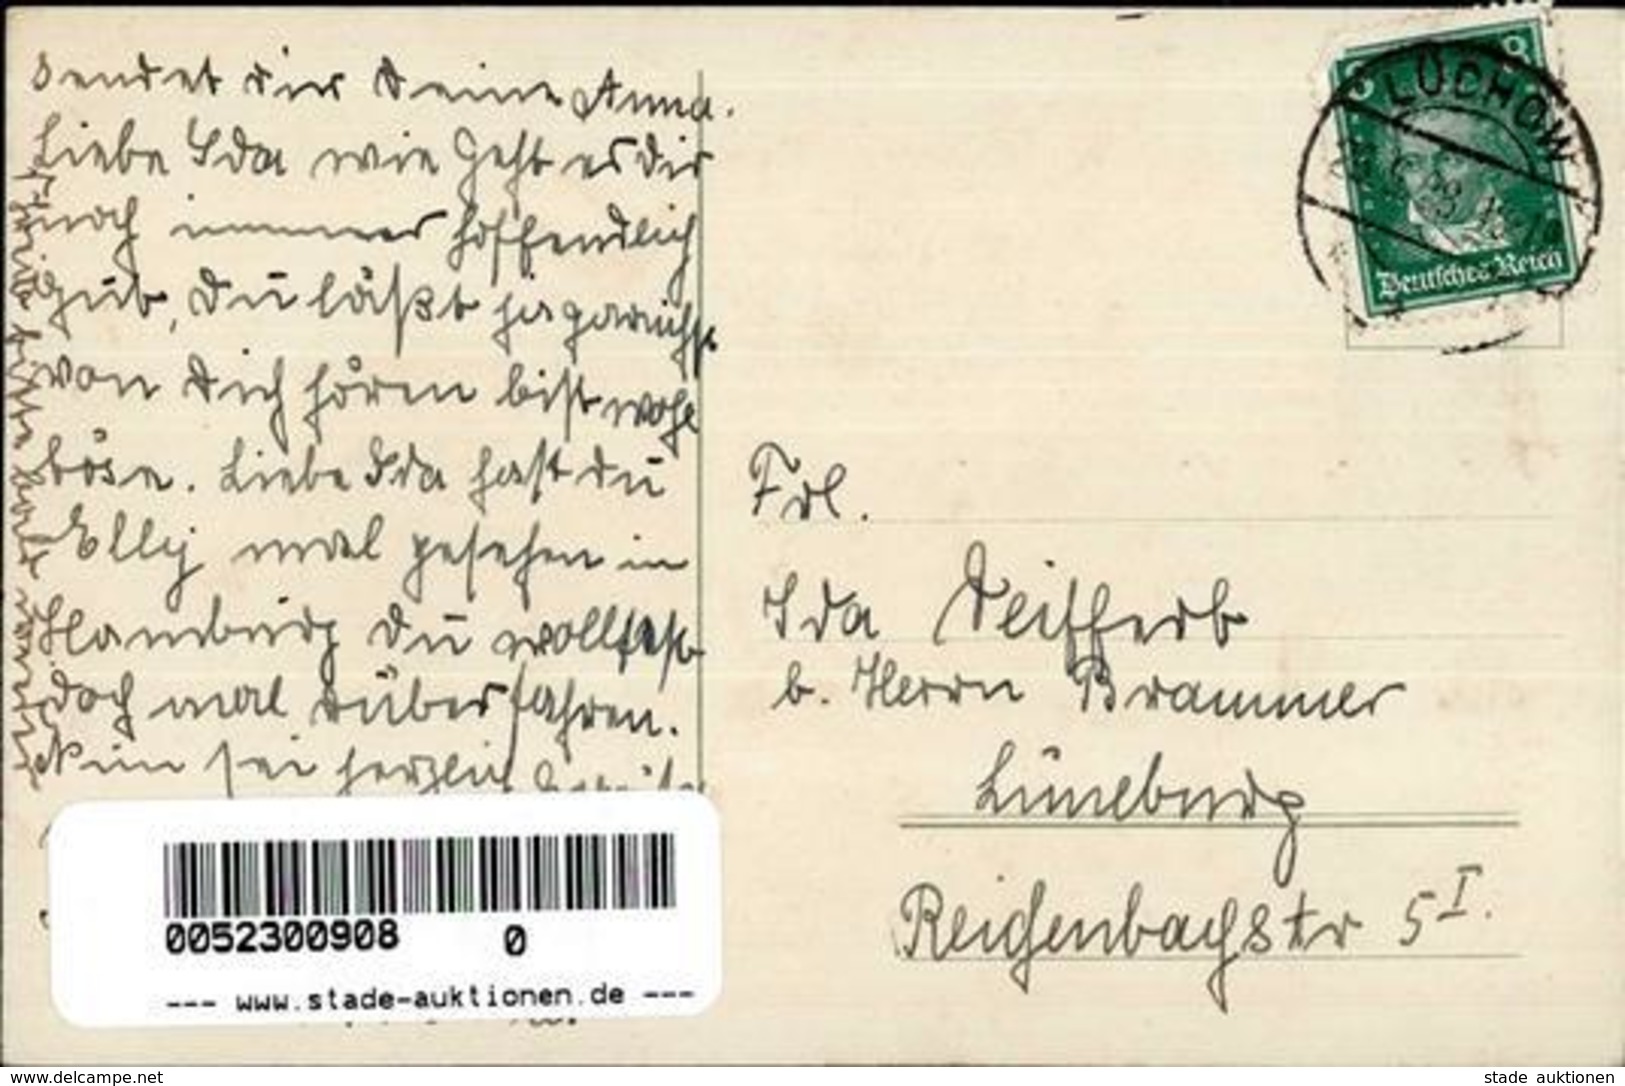 sendet dir Deine Anna.
Liebe Ida wie geht es dir
noch immer hoffendlich
gut, Du läßt ja garnichst
von Dich hören bist wohl
böse. Liebe Ida hast du
Elly mal gesehen in
Hamburg du wollstest
doch mal rüber fahren.
Nun sei herzlich
Frl.
Ida Seiffert
b. Herrn Brammer
Lüneburg
Reichenbachstr 5 I.
8
LÜCHOW
Deutsches Reich
0052300908 0
--- www.stade-auktionen.de ---
www.delcampe.net
stade auktionen